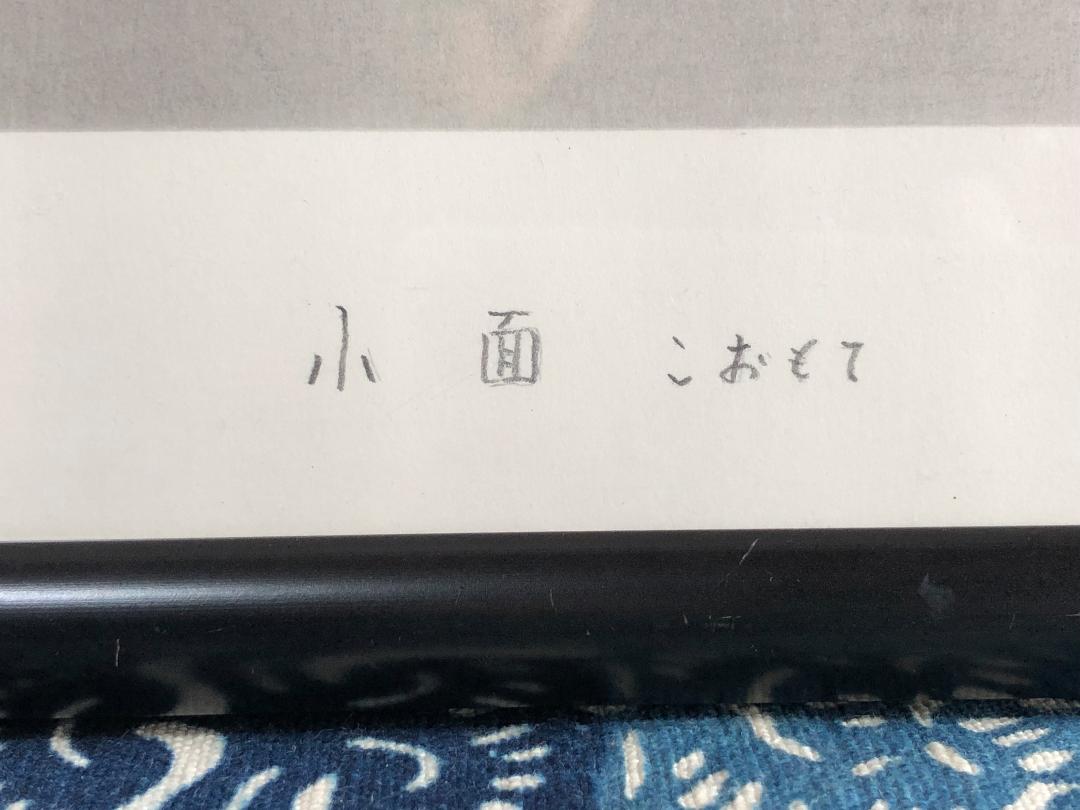 小面 こおもて